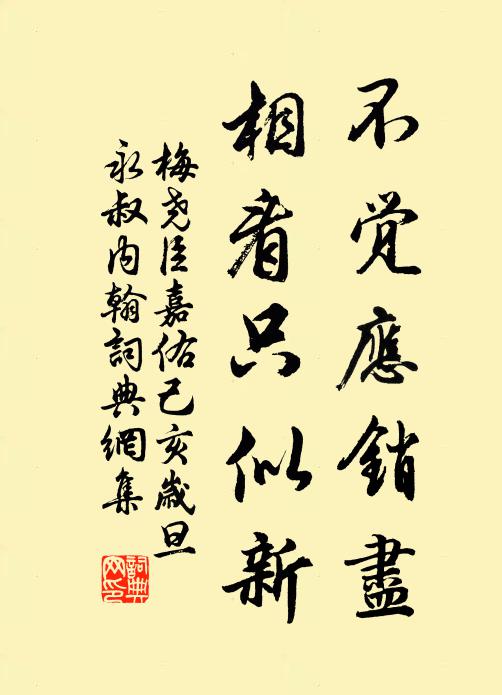 不觉應銷盡
相看只似新
梅尧臣嘉佑己亥歲旦
永叔内翰詞典網集
詞典網印